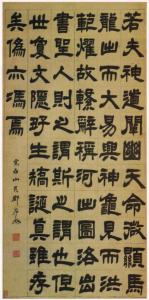 若夫神道闡幽天命微顯馬
龍出而大易興神龜見而洪
範燿故繫辭稱河出圖洛出
書聖人則之斯之謂也但
世夐文隱好生矯誕真雖存
矣偽亦馮焉
完白山民鄧石如